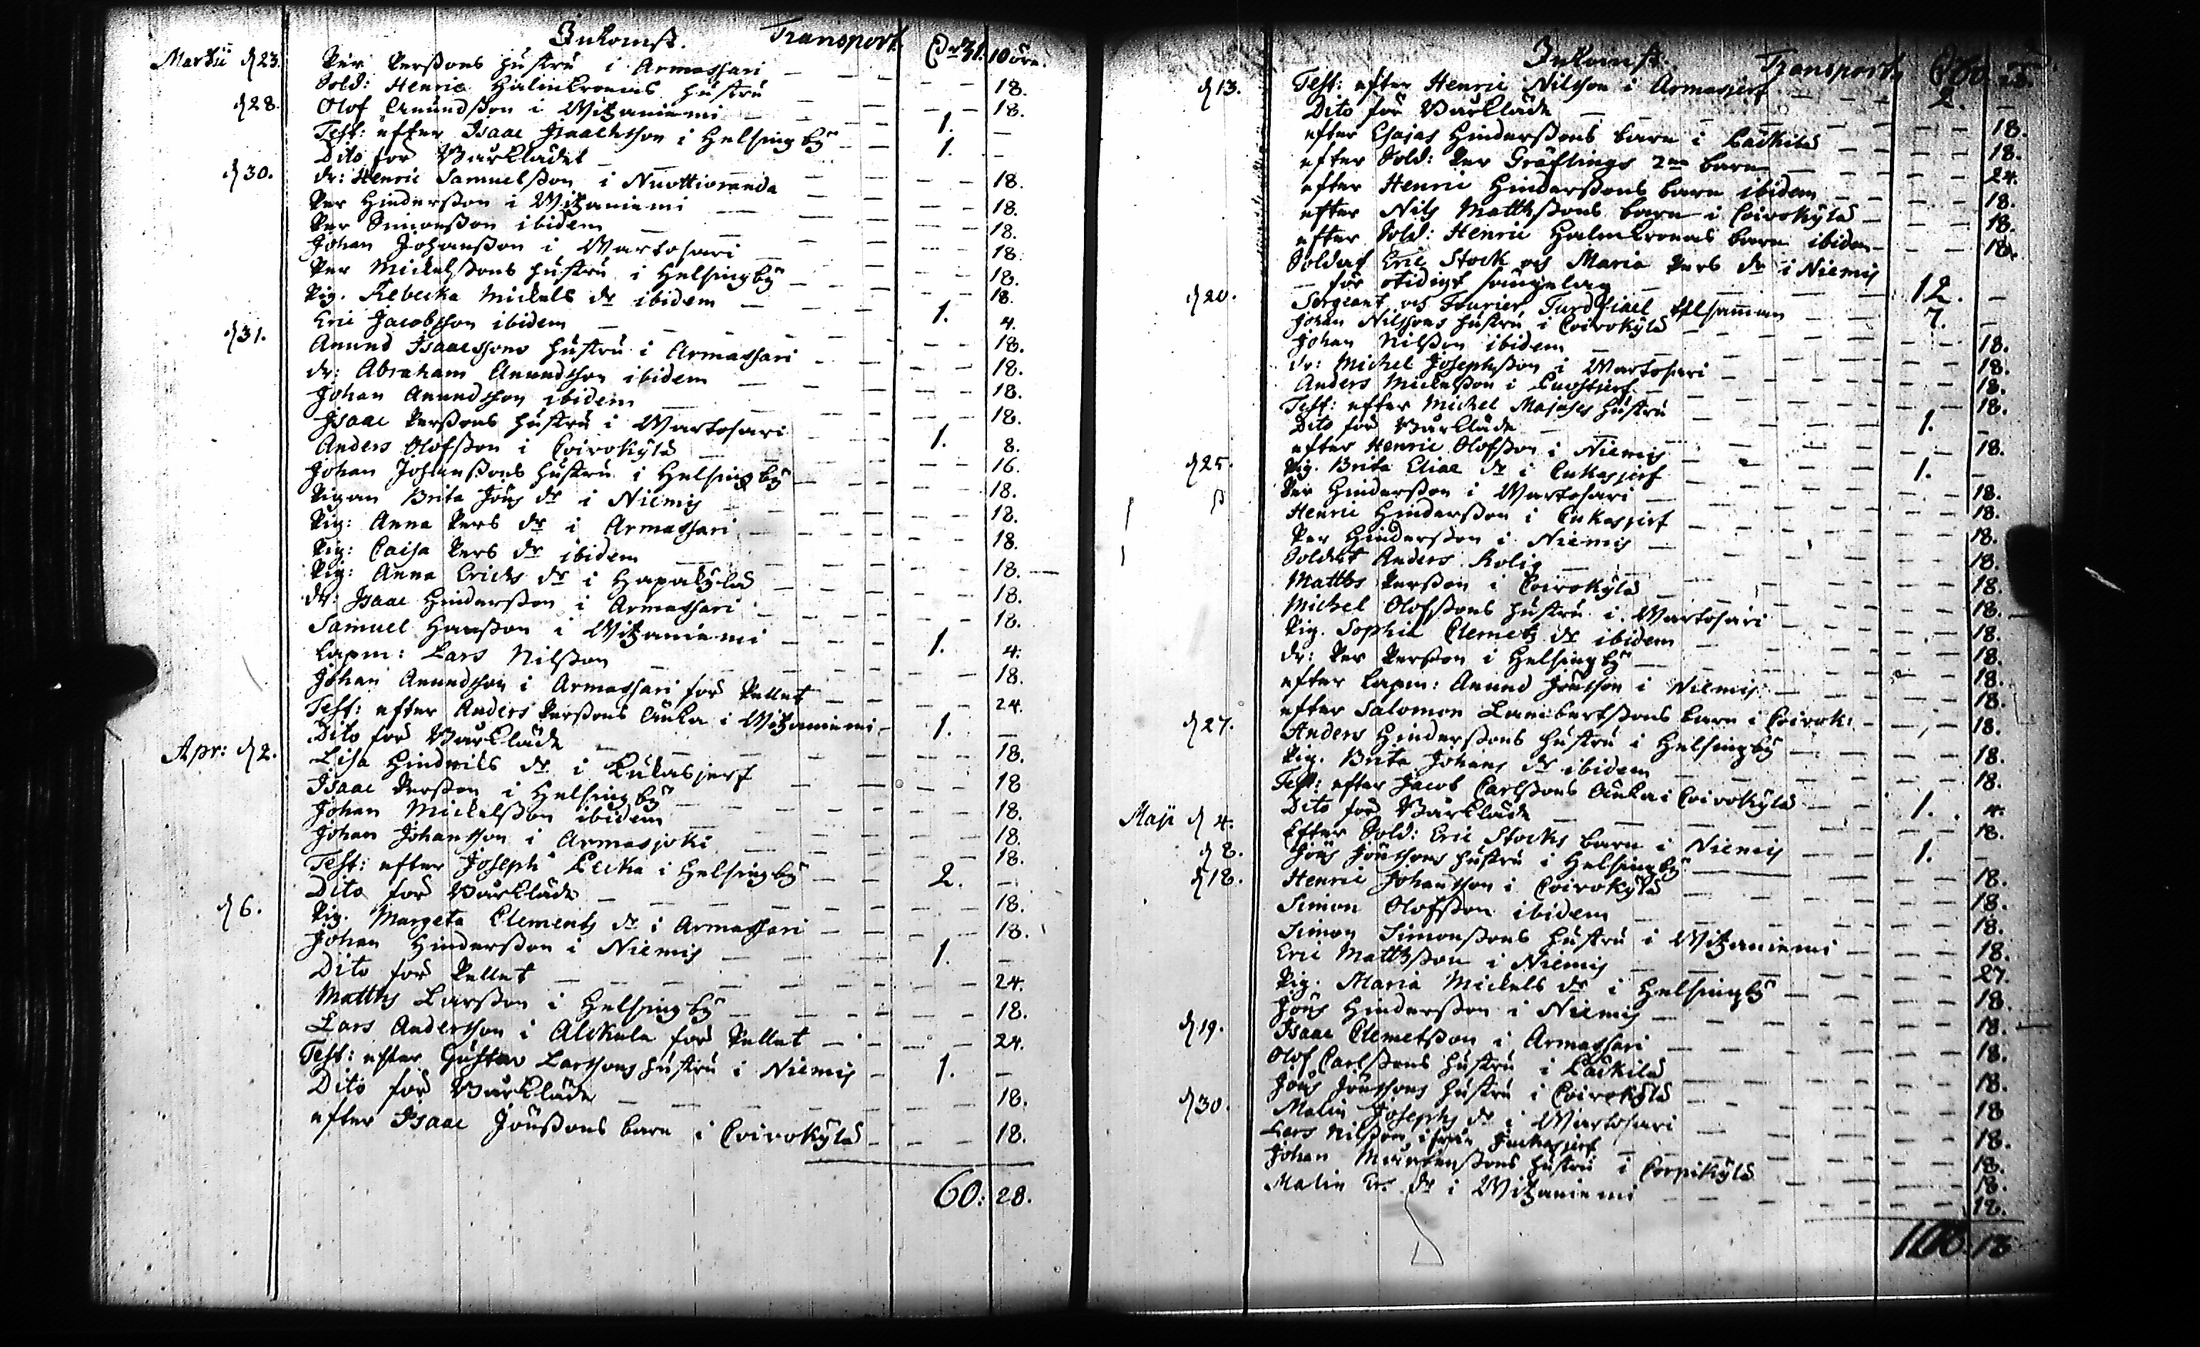 Inkomst. Transport Dr 31. 10 öre.
Martii d 23. Per Perssons hustru i Armassari — 18.
Sold: Henric Halmkronas hustru — 18.
d 28. Olof Anundsson i Witzaniemi 1. —
Test: efter Isaac Isaacksson i Helsingby 1. —
Dito för Bårklädet — 18.
d 30. dr: Henric Samuelsson i Nuottioranda — 18.
Per Hindersson i Witzaniemi — 18.
Per Simonsson ibidem — 18.
Johan Johansson i Wartosari — 18.
Per Mickelssons hustru i Helsingby — 18.
Pig. Rebecka Mickels dr ibidem 1. 4.
Eric Jacobsson ibidem — 18.
d 31. Anund Isaacssons hustru i Armassari — 18.
dr: Abraham Anundsson ibidem — 18.
Johan Anundsson ibidem — 18.
Isaac Perssons hustru i Wartosari 1. 8.
Anders Olofsson i Coivokylä — 16.
Johan Johanssons hustru i Helsingby — 18.
Pigan Brita Jöns dr i Niemis — 18.
Pig: Anna Pers dr i Armassari — 18.
Pig: Caisa Pers dr ibidem — 18.
Pig: Anna Erichs dr i Hapakylä — 18.
dr: Isaac Hindersson i Armassari — 18.
Samuel Hansson i Witzaniemi 1. 4.
Lapm: Lars Nilsson — 18.
Johan Anundsson i Armassari för Pellet — 24.
Test: efter Anders Perssons Änka i Witzaniemi 1. —
Dito för Bårkläde — 18.
Apr: d 2. Lisa Hindrichs dr i Lukasjerf — 18
Isaac Persson i Helsingby — 18.
Johan Mickelsson ibidem — 18.
Johan Johansson i Armasjoki — 18.
Test: efter Joseph Lecka i Helsingby 2. —
Dito för Bårkläde — 18.
d 6. Pig. Margeta Clements dr i Armassari — 18.
Johan Hindersson i Niemis 1. —
Dito för Pellet — 24.
Matths Larsson i Helsingby — 18.
Lars Andersson i Alckula för Pellet — 24.
Test: efter Gustav Larssons hustru i Niemis 1. —
Dito för Bårkläde — 18.
efter Isaac Jönssons barn i Coivokylä — 18.
60: 28.
Inkomst. Transport
d 13. Test: efter Henric Nilsson i Armasjerf 2. —
Dito för Bårkläde — 18.
efter Esaias Hinderssons barn i — 18.
efter Sold: Per Gräflings 2ne barn — 24.
efter Henric Hinderssons barn ibidem — 18.
efter Nils Matthssons barn i Coivokylä — 18.
efter Sold: Henric Halmkronas barn ibidem — 18.
Soldat Eric Stock och Maria Pers dr i Niemis
för otidigt sängelag 12. —
d 20. Sergeant och Fourier Turdfiael tillsamman 7. —
Johan Nilssons hustru i Coivokylä — 18.
Johan Nilsson ibidem — 18.
dr: Michel Josephsson i Wartosari — 18.
Anders Mickelsson i — 18.
Test: efter Michel Majases hustru 1. —
Dito för Bårkläde — 18.
efter Henric Olofsson i Niemis 1. —
d 25. Pig. Brita Eliae dr i Lukasjerf — 18.
Per Hindersson i Wartosari — 18.
Henric Hindersson i Lukasjerf — 18.
Per Hindersson i Niemis — 18.
Soldat Anders Rolig — 18.
Matths Persson i Coivokylä — 18.
Michel Olofssons hustru i Wartosari — 18.
Pig. Sophia Clemets dr ibidem — 18.
dr: Per Persson i Helsingby — 18.
efter Lapm: Anund Jönsson i Niemis — 18.
efter Salomon Lambertssons barn i Coivok: — 18.
d 27. Anders Hinderssons hustru i Helsingby — 18.
Pig. Brita Johans dr ibidem — 18.
Test: efter Jacob Carlssons Änka i Coivokylä 1. 4.
Dito för Bårkläde — 18.
Maji d 4. Efter Sold: Eric Stocks barn i Niemis 1. —
d 8. Jöns Jönssons hustru i Helsingby — 18.
d 18. Henric Johansson i Coivokylä — 18.
Simon Olofsson ibidem — 18.
Simon Simonssons hustru i Witzaniemi — 18.
Eric Matthsson i Niemis — 27.
Pig. Maria Mickels dr i Helsingby — 18.
Jöns Hindersson i Niemis — 18.
d 19. Isaac Clemetsson i Armassari — 18.
Olof Carlssons hustru i — 18.
Jöns Jönssons hustru i Coivokylä — 18
d 30. Malin Josephs dr i Wartosari — 18.
Lars Nilsson ifrån Juckasjerf — 18.
Johan Mårtenssons hustru i Corpikylä — 18.
Malin Er. dr i Witzaniemi — 18.
100. 18